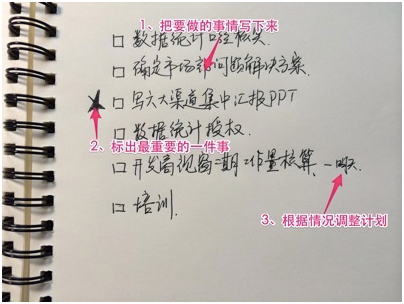 1、把要做的事情写下来
□ 数据统计口径核头
□ 确定市场部问题解决方案.
□ 写六大渠道集中汇报PPT
□ 数据统计授权.
2、标出最重要的一件事
□ 开发商视窗二期工作量核算.
□ 培训.
3、根据情况调整计划